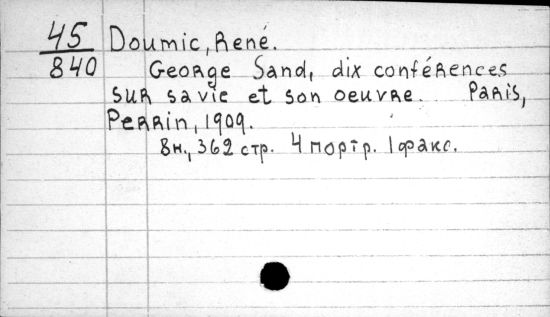 45 Doumic, René.
840 George Sand, dix conférences
sur sa vie et son oeuvre. Paris,
Perrin, 1909.
8н., 362 стр. 4 портр. 1 факс.